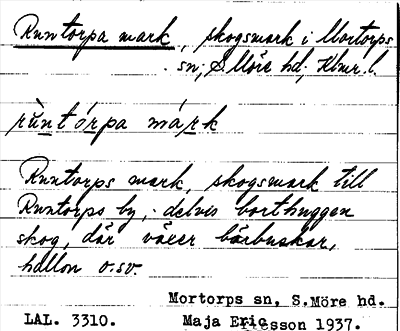 Runtorpa mark, skogsmark i Mortorps
sn, S. Möre hd, Klmr. l.
rùntórpa márk
Runtorps mark, skogsmark till
Runtorps by, delvis borthuggen
skog, där växer bärbuskar,
hallon o.sv.
Mortorps sn, S.Möre hd.
LAL. 3310. Maja Ericsson 1937.